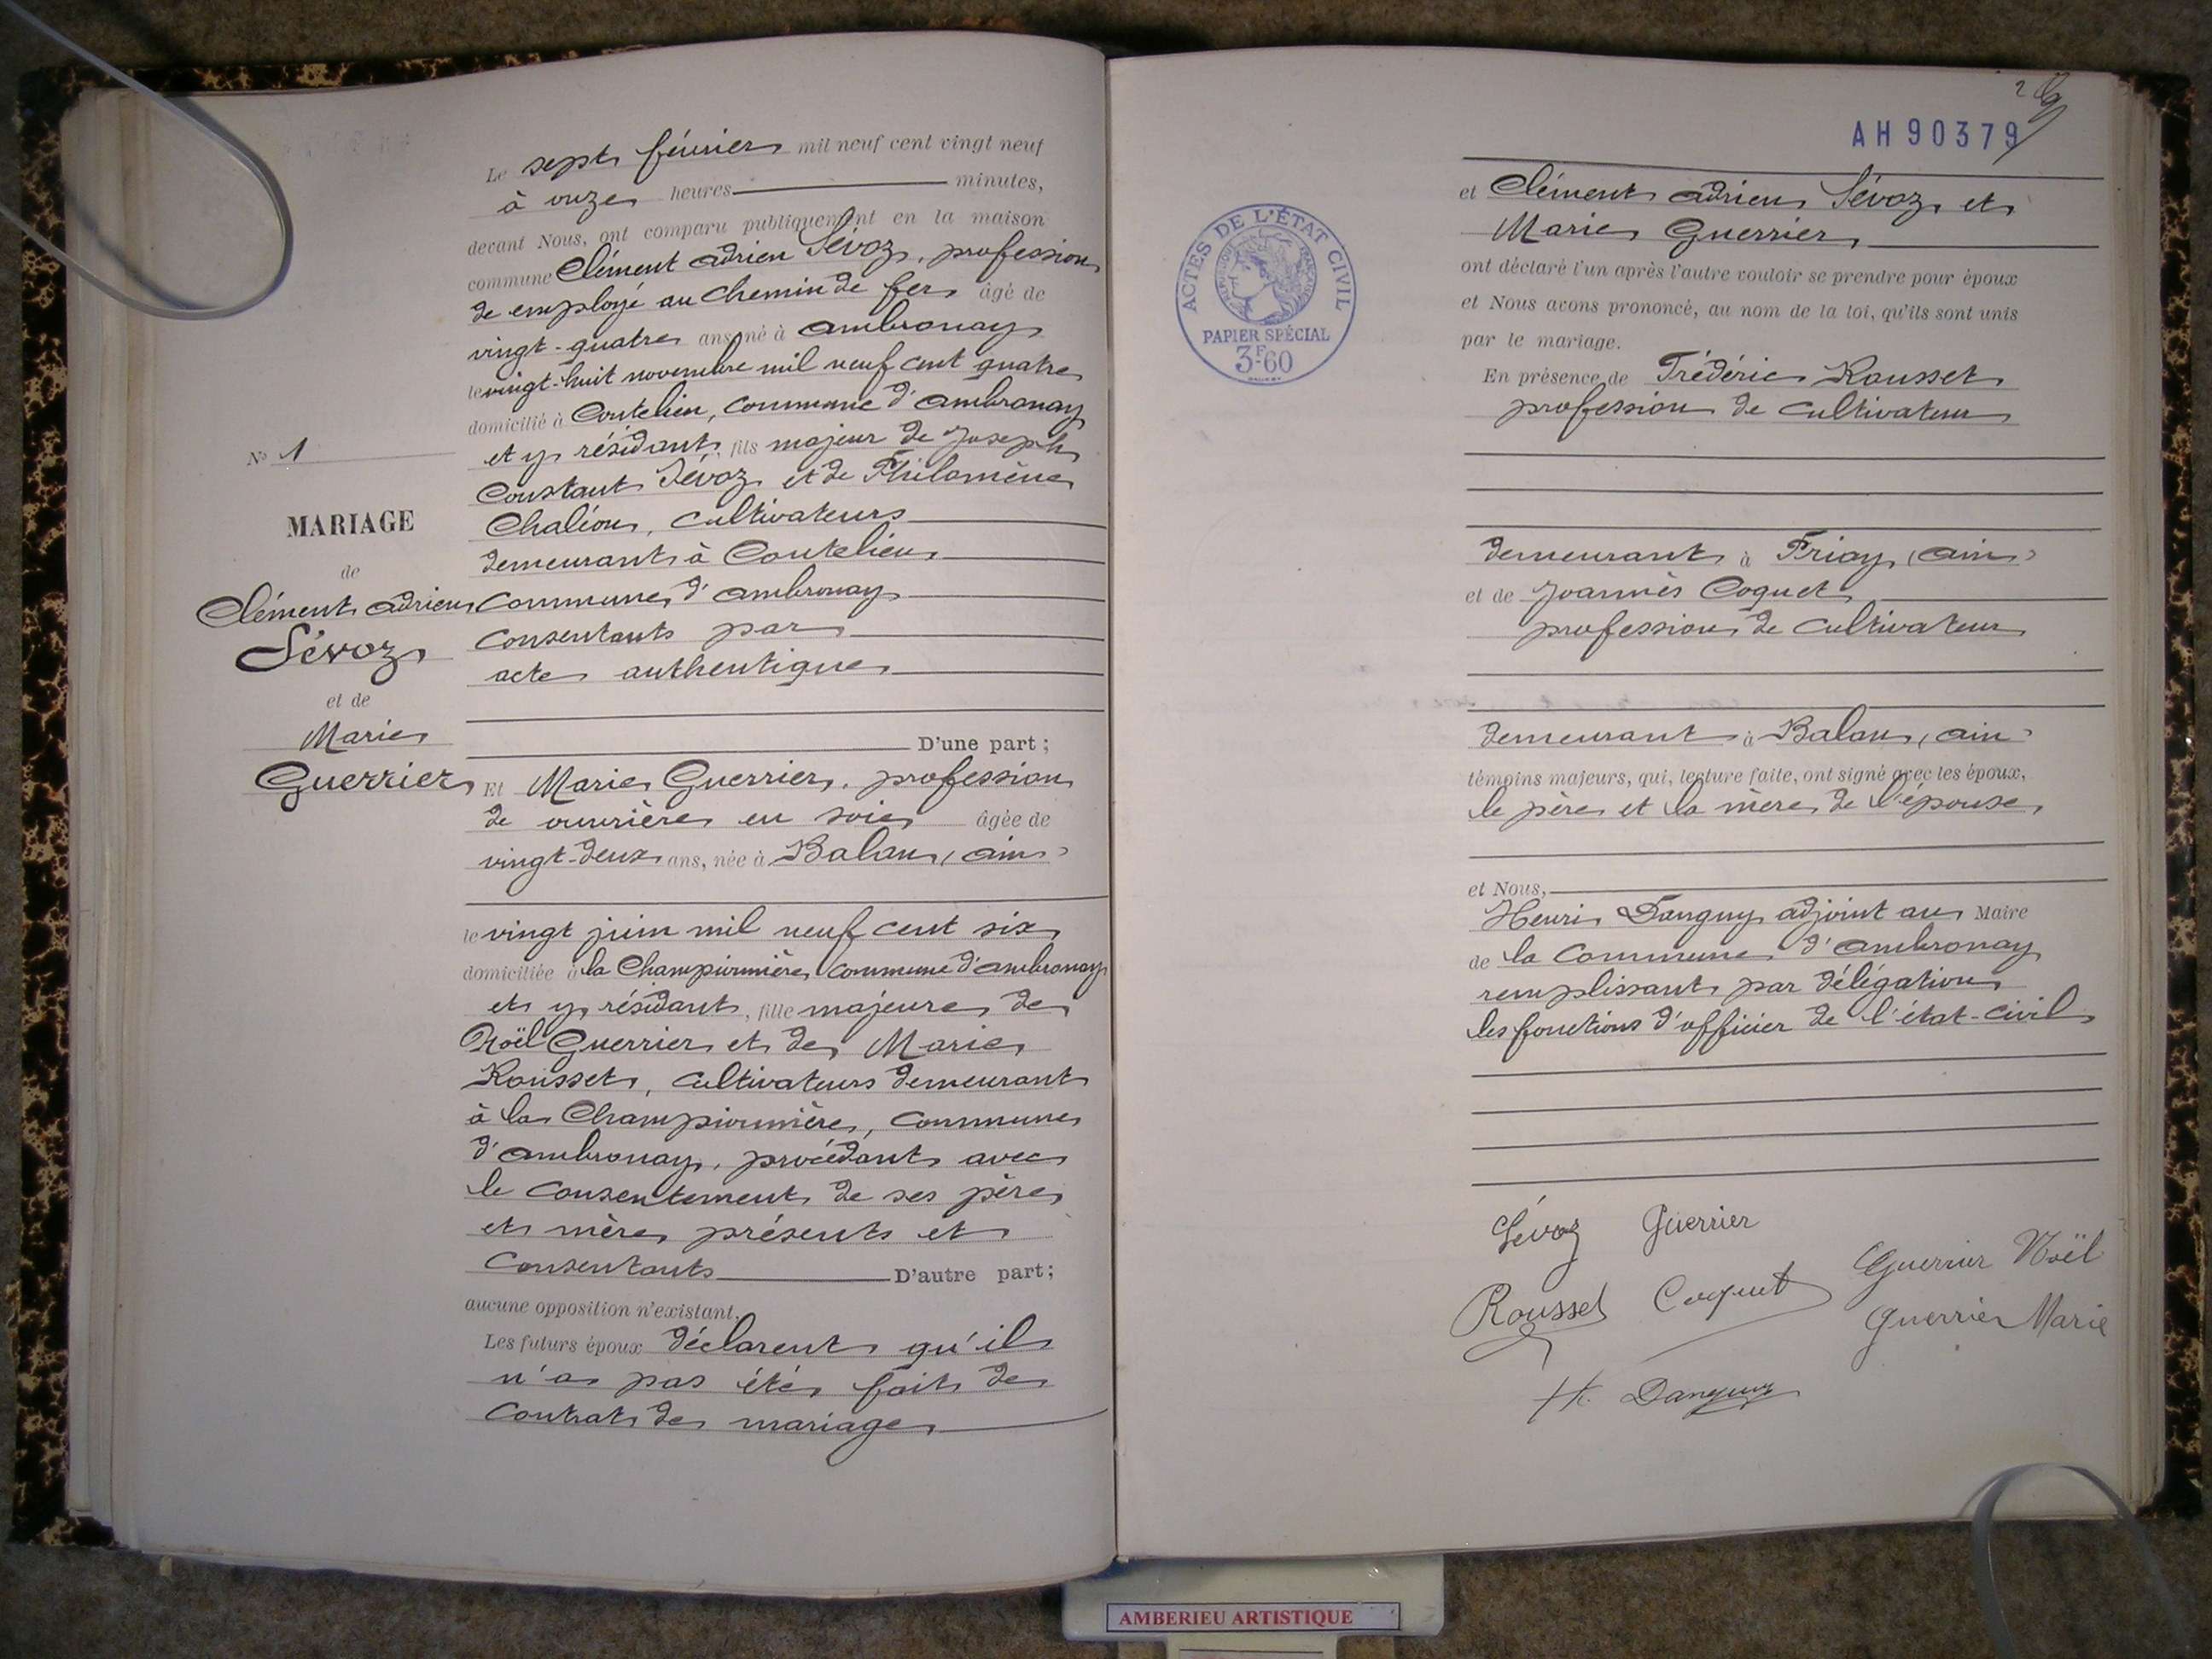 Le sept février mil neuf cent vingt neuf
à onze heures minutes,
devant Nous, ont comparu publiquement en la maison
commune Clément adrien Sévoz, profession
de employé au chemin de fer âgé de
vingt-quatre ans, né à ambronay
le vingt-huit novembre mil neuf cent quatre
domicilié à Coutelieu, commune d'ambronay
et y résidant, fils majeur de Joseph
Constant Sévoz et de Philomène
Chaléon, cultivateurs
demeurant à Coutelieu
Commune d'ambronay
consentants par
acte authentique
D'une part;
Et Marie Guerrier, profession
de ouvrière en soie âgée de
vingt-deux ans, née à Balan, (ain)
le vingt juin mil neuf cent six
domiciliée à la Championnière, commune d'ambronay
et y résidant, fille majeure de
Noël Guerrier et de Marie
Rousset, cultivateurs demeurant
à la Championnière, commune
d'ambronay, procédant avec
le consentement de ses père
et mère présents et
Consentants D'autre part;
aucune opposition n'existant.
Les futurs époux déclarent qu'il
n'a pas été fait de
contrat de mariage
N° 1
MARIAGE
de
Clément adrien
Sévoz
et de
Marie
Guerrier
AH90379
ACTES DE L'ÉTAT CIVIL
RÉPUBLIQUE FRANÇAISE
PAPIER SPÉCIAL
3F60
et Clément adrien Sévoz et
Marie Guerrier
ont déclaré l'un après l'autre vouloir se prendre pour époux
et Nous avons prononcé, au nom de la loi, qu'ils sont unis
par le mariage.
En présence de Frédéric Rousset
profession de cultivateur
demeurant à Priay, (ain)
et de Joannès Coquet
profession de cultivateur
demeurant à Balan, (ain)
témoins majeurs, qui, lecture faite, ont signé avec les époux,
le père et la mère de l'épouse,
et Nous,
Henri Danguy adjoint au Maire
de la Commune d'ambronay
remplissant par délégation
les fonctions d'officier de l'état-civil
Sévoz Guerrier
Guerrier Noël
Rousset Coquet
Guerrier Marie
H. Danguy
AMBERIEU ARTISTIQUE